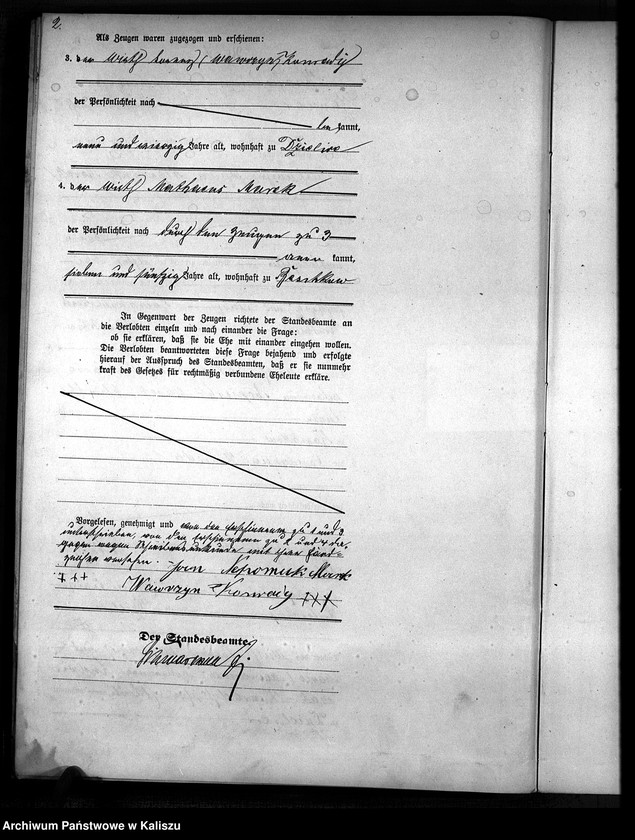 2.
Als Zeugen waren zugezogen und erschienen:
3. der Wirth Lorenz (Wawrzyn) Konrady
der Persönlichkeit nach
be kannt,
neun und vierzig Jahre alt, wohnhaft zu
4. der Wirth Mathaeus Marek
der Persönlichkeit nach durch den Zeugen zu 3
aner kannt,
sieben und fünfzig Jahre alt, wohnhaft zu
In Gegenwart der Zeugen richtete der Standesbeamte an
die Verlobten einzeln und nach einander die Frage:
ob sie erklären, daß sie die Ehe mit einander eingehen wollen.
Die Verlobten beantworteten diese Frage bejahend und erfolgte
hierauf der Ausspruch des Standesbeamten, daß er sie nunmehr
kraft des Gesetzes für rechtmäßig verbundene Eheleute erkläre.
Vorgelesen, genehmigt und von den Erschienenen zu 1 und 3
unterschrieben, von den Erschienenen zu 2 und 4 da-
gegen wegen Schreibensunkunde mit ihren Hand-
zeichen versehen. Jan Nepomuk Marek
+ + +
Wawrzyn Konrady + + +
Der Standesbeamte
Archiwum Państwowe w Kaliszu